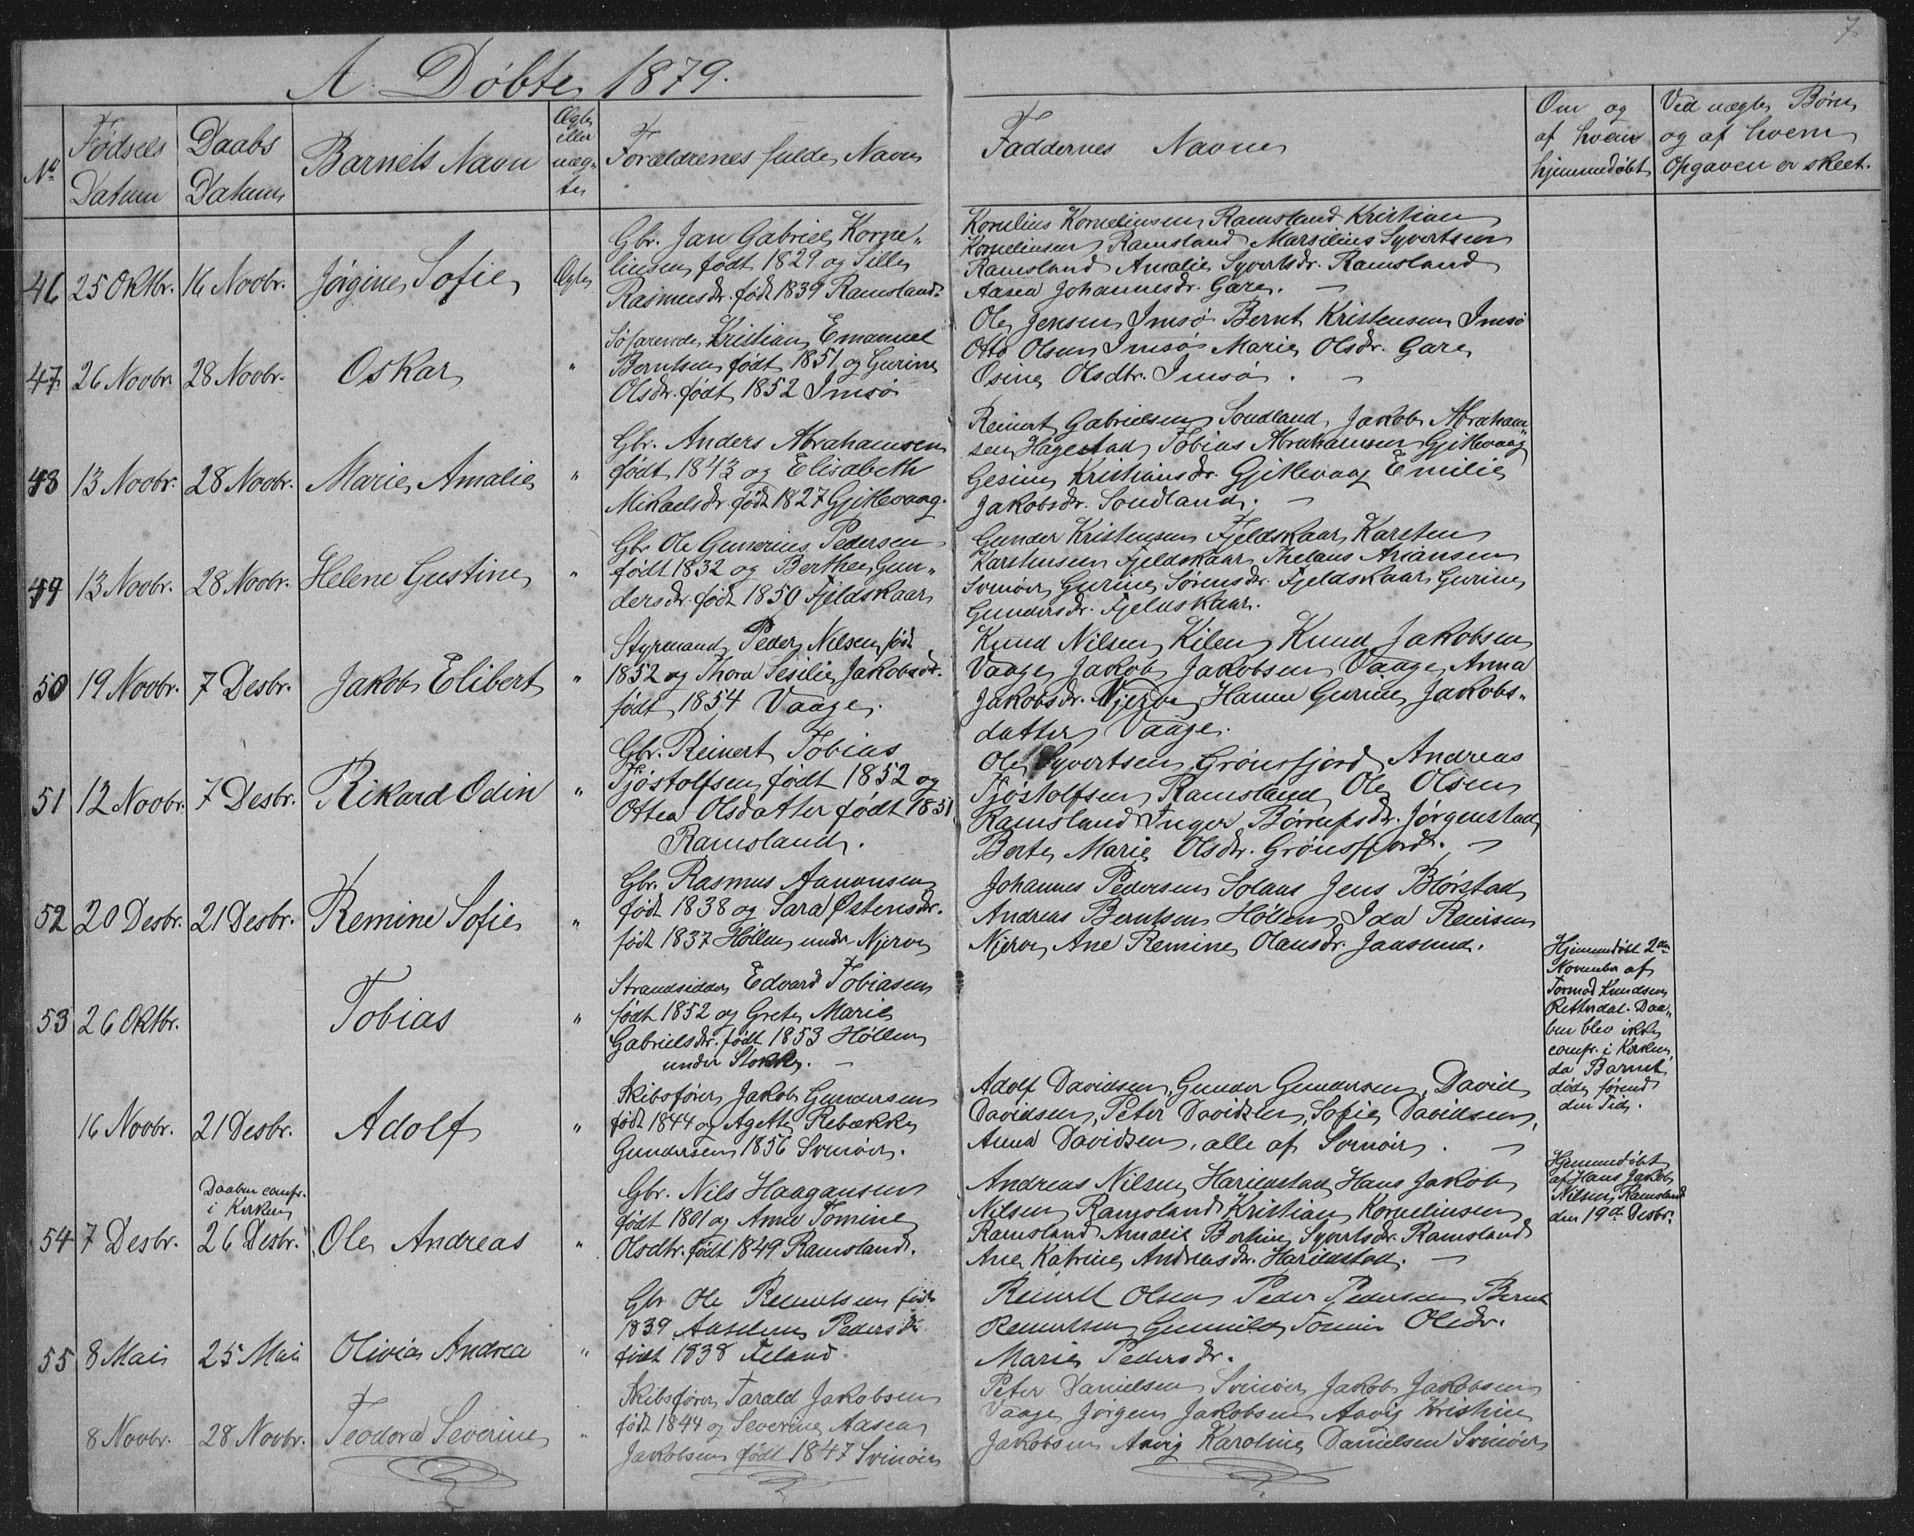 7.
A. Døbte 1879.
No
Fødsels Datum
Daabs Datum
Barnets Navn
Ægte eller uæg-te
Forældrenes fulde Navn
Faddernes Navne
Om og af hvem hjemmedøbt
Ved uægte Børn og af hvem Opgaven er skeet.
46 25 Oktbr. 16 Novbr. Jørgine Sofie Ægte
Gbr. Jan Gabriel Korne-
liusen født 1829 og Sille
Rasmusdr. født 1839 Ramsland.
Kornelius Korneliusen Ramsland Kristian
Korneliusen Ramsland Marsilius Syvertsen
Ramsland Amalie Syvertsdr. Ramsland
Aasea Johannesdr. Gare. —
47 26 Novbr. 28 Novbr. Oskar "
Søfarende Kristian Emanuel
Berntsen født 1851 og Gurine
Olsdr. født 1852 Imsø
Ole Jensen Imsø Bernt Kristensen Imsø
Otto Olsen Imsø Marie Olsdr. Gare
Osine Olsdtr. Imsø. —
48 13 Novbr. 28 Novbr. Marie Amalie "
Gbr. Anders Abrahamsen
født 1843 og Elisabeth
Mikaelsdr. født 1827 Gjitlevaag.
Reinert Gabrielsen Sondland, Jakob Abraham-
sen Hagestad Tobias Abrahamsen Gjitlevaag
Gesine Kristiansdr. Gjitlevaag Emilie
Jakobsdr. Sondland. —
49 13 Novbr. 28 Novbr. Helene Gustine "
Gbr. Ole Gunerius Pedersen
født 1832 og Berthe Gun-
dersdr. født 1850 Fjeldskaar
Gunder Kristensen Fjeldskaar, Karsten
Karstensen Fjeldskaar, Thelaus Ariansen
Svinøer, Gurine Sørensdr. Fjeldskaar, Gurine
Gundersdr. Fjeldskaar.
50 19 Novbr. 7 Desbr. Jakob Elibert "
Styrmand Peder Nilsen født
1852 og Thora Sesilie Jakobsdr.
født 1854 Vaage.
Knud Nilsen Kilen Knud Jakobsen
Vaage Jakob Jakobsen Vaage, Anna
Jakobsdr. Njerve, Hanne Gurine Jakobs-
datter Vaage.
51 12 Novbr. 7 Desbr. Rikard Odin "
Gbr. Reinert Tobias
Tjøstolfsen født 1852 og
Ottea Olsdatter født 1851
Ramsland.
Ole Syvertsen Grønsfjord Andreas
Tjøstolfsen Ramsland, Ole Olsen
Ramsland Inger Børrufsdr. Jørgenstad
Berte Marie Olsdr. Grønsfjord. —
52 20 Desbr. 21 Desbr. Remine Sofie "
Gbr. Rasmus Aanonsen
født 1838 og Sara Østensdr.
født 1837 Høllen under Njerve
Johannes Pedersen Solaas Jens Blørstad
Andreas Berntsen Høllen, Ida Reiersen
Njerve, Ane Remine Olausdr. Jaasund.
53 26 Oktbr. Tobias "
Strandsidder Edvard Tobiasen
født 1852 og Grete Marie
Gabrielsdr. født 1853 Høllen
under Stokke. —
Hjemmedøbt 2den
November af
Tormod Knudsen
Rettedal. Daa-
ben blev ikke
comfr. i Kirken,
da Barnet
døde førend
den Tid.
16 Novbr. 21 Desbr. Adolf "
Skibsfører Jakob Gundersen
født 1844 og Agette Rebække
Gundersen 1856 Svinøer.
Adolf Davidsen, Gunder Gundersen, David
Davidsen, Peter Davidsen, Sofie Davidsen,
Anna Davidsen, alle af Svinøer. —
54 7 Desbr. Daaben comfr. i Kirken 26 Desbr. Ole Andreas "
Gbr. Nils Haagansen
født 1801 og Anne Tomine
Olsdtr. født 1849 Ramsland.
Andreas Nilsen Harienstad, Hans Jakob
Nilsen Ramsland Kristian Korneliusen
Ramsland Amalie Bertine Syvertsdr. Ramsland
Ane Katrine Andreasdr. Harienstad. —
Hjemmedøbt
af Hans Jakob
Nilsen, Ramsland
den 19de Desbr.
55 8 Mai 25 Mai Olivia Andrea "
Gbr Ole Reinertsen født
1839 Pedersdr
født 1838
Reinert Olsen Peder Pedersen Bernt
Reinertsen, Gunnild Tomine Olsdr.
Marie Pedersdr.
8 Novbr. 28 Novbr. Teodora Severine "
Skibsfører Tarald Jakobsen
født 1844 og Severine Aasea
Jakobsen født 1847 Svinøer
Peter Danielsen Svinøer, Jakob Jakobsen
Vaage Jørgen Jakobsen Aavig Kristine
Jakobsen Aavig Karoline Danielsen Svinøer